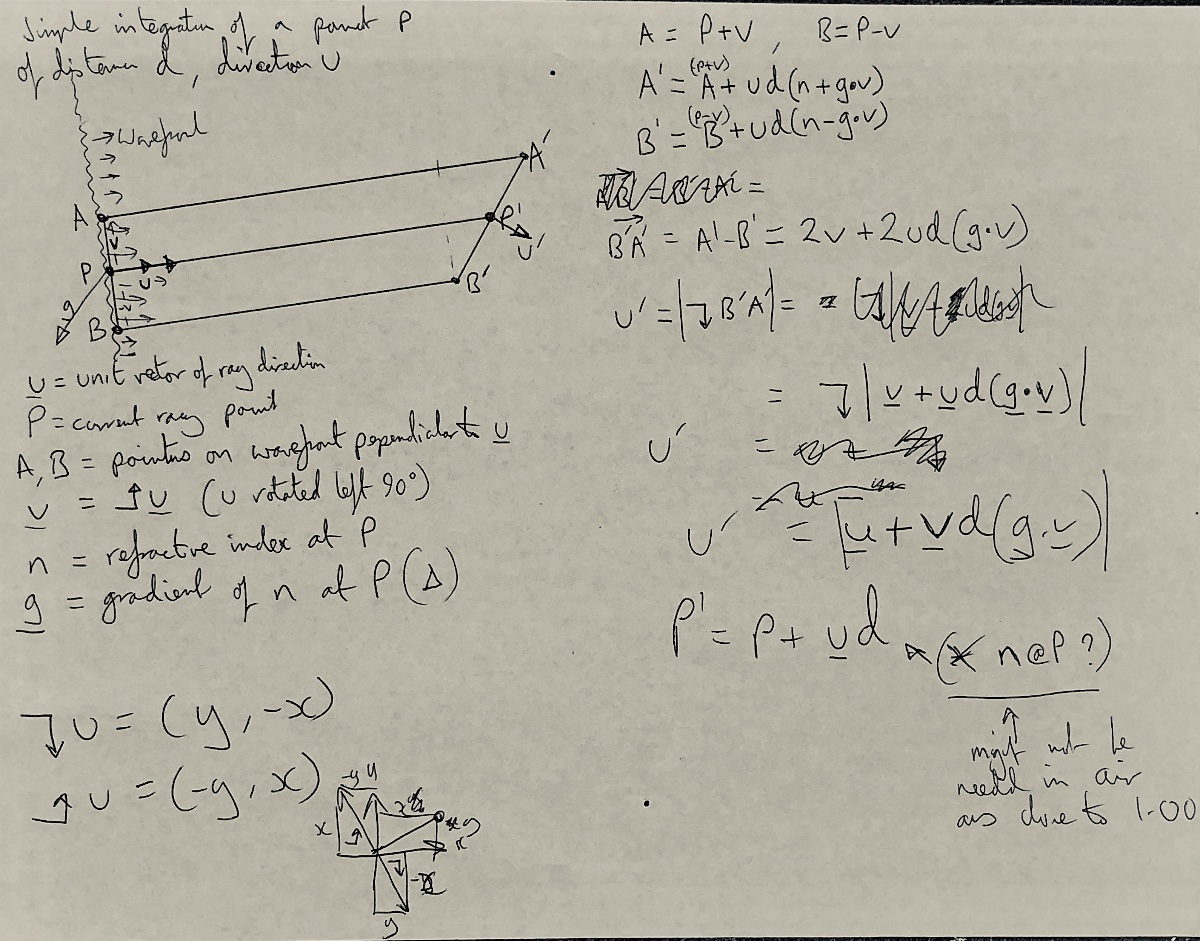 Simple integration of a point P
of distance d, direction U
→ Wavefront
A
A'
P
v
U
P'
U'
g
B
B'
u = unit vector of ray direction
P = current ray point
A, B = points on wavefront perpendicular to u
v = ↰ u (U rotated left 90°)
n = refractive index at P
g = gradient of n at P (Δ)
↴ U = (y, -x)
↰ U = (-y, x)
-y
x
y
A = P+V , B = P-V
(P+V)
A' = A + ud(n+g•v)
(P-V)
B' = B + ud(n-g•v)
B'A' = A'-B' = 2v + 2ud(g•v)
U' = |↴ B'A'| =
= ↴ | v + u d(g•v) |
U' =
U' = | u + v d(g.v) |
P' = P + u d (× n@P ?)
might not be
needed in air
as close to 1.00